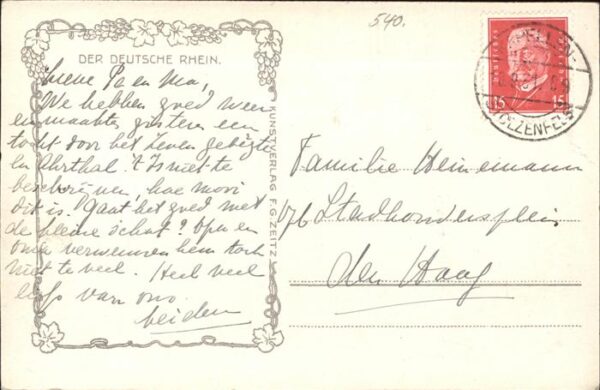 540.
DER DEUTSCHE RHEIN.
Lieve Pa en Ma,
We hebben goed weer
en maakte gisteren een
tocht door het Zeven gebergte
en Ahrthal. 't Is niet te
beschrijven, hoe mooi
dit is. Gaat het goed met
de kleine schat? Opa en
oma verwennen hem toch
niet te veel. Heel veel
liefs van ons
beiden
KUNSTVERLAG F.G. ZEITZ
Familie Heinemann
Stadhoudersplein
den Haag
DEUTSCHES
15 15
KAPELLEN-
STOLZENFELS